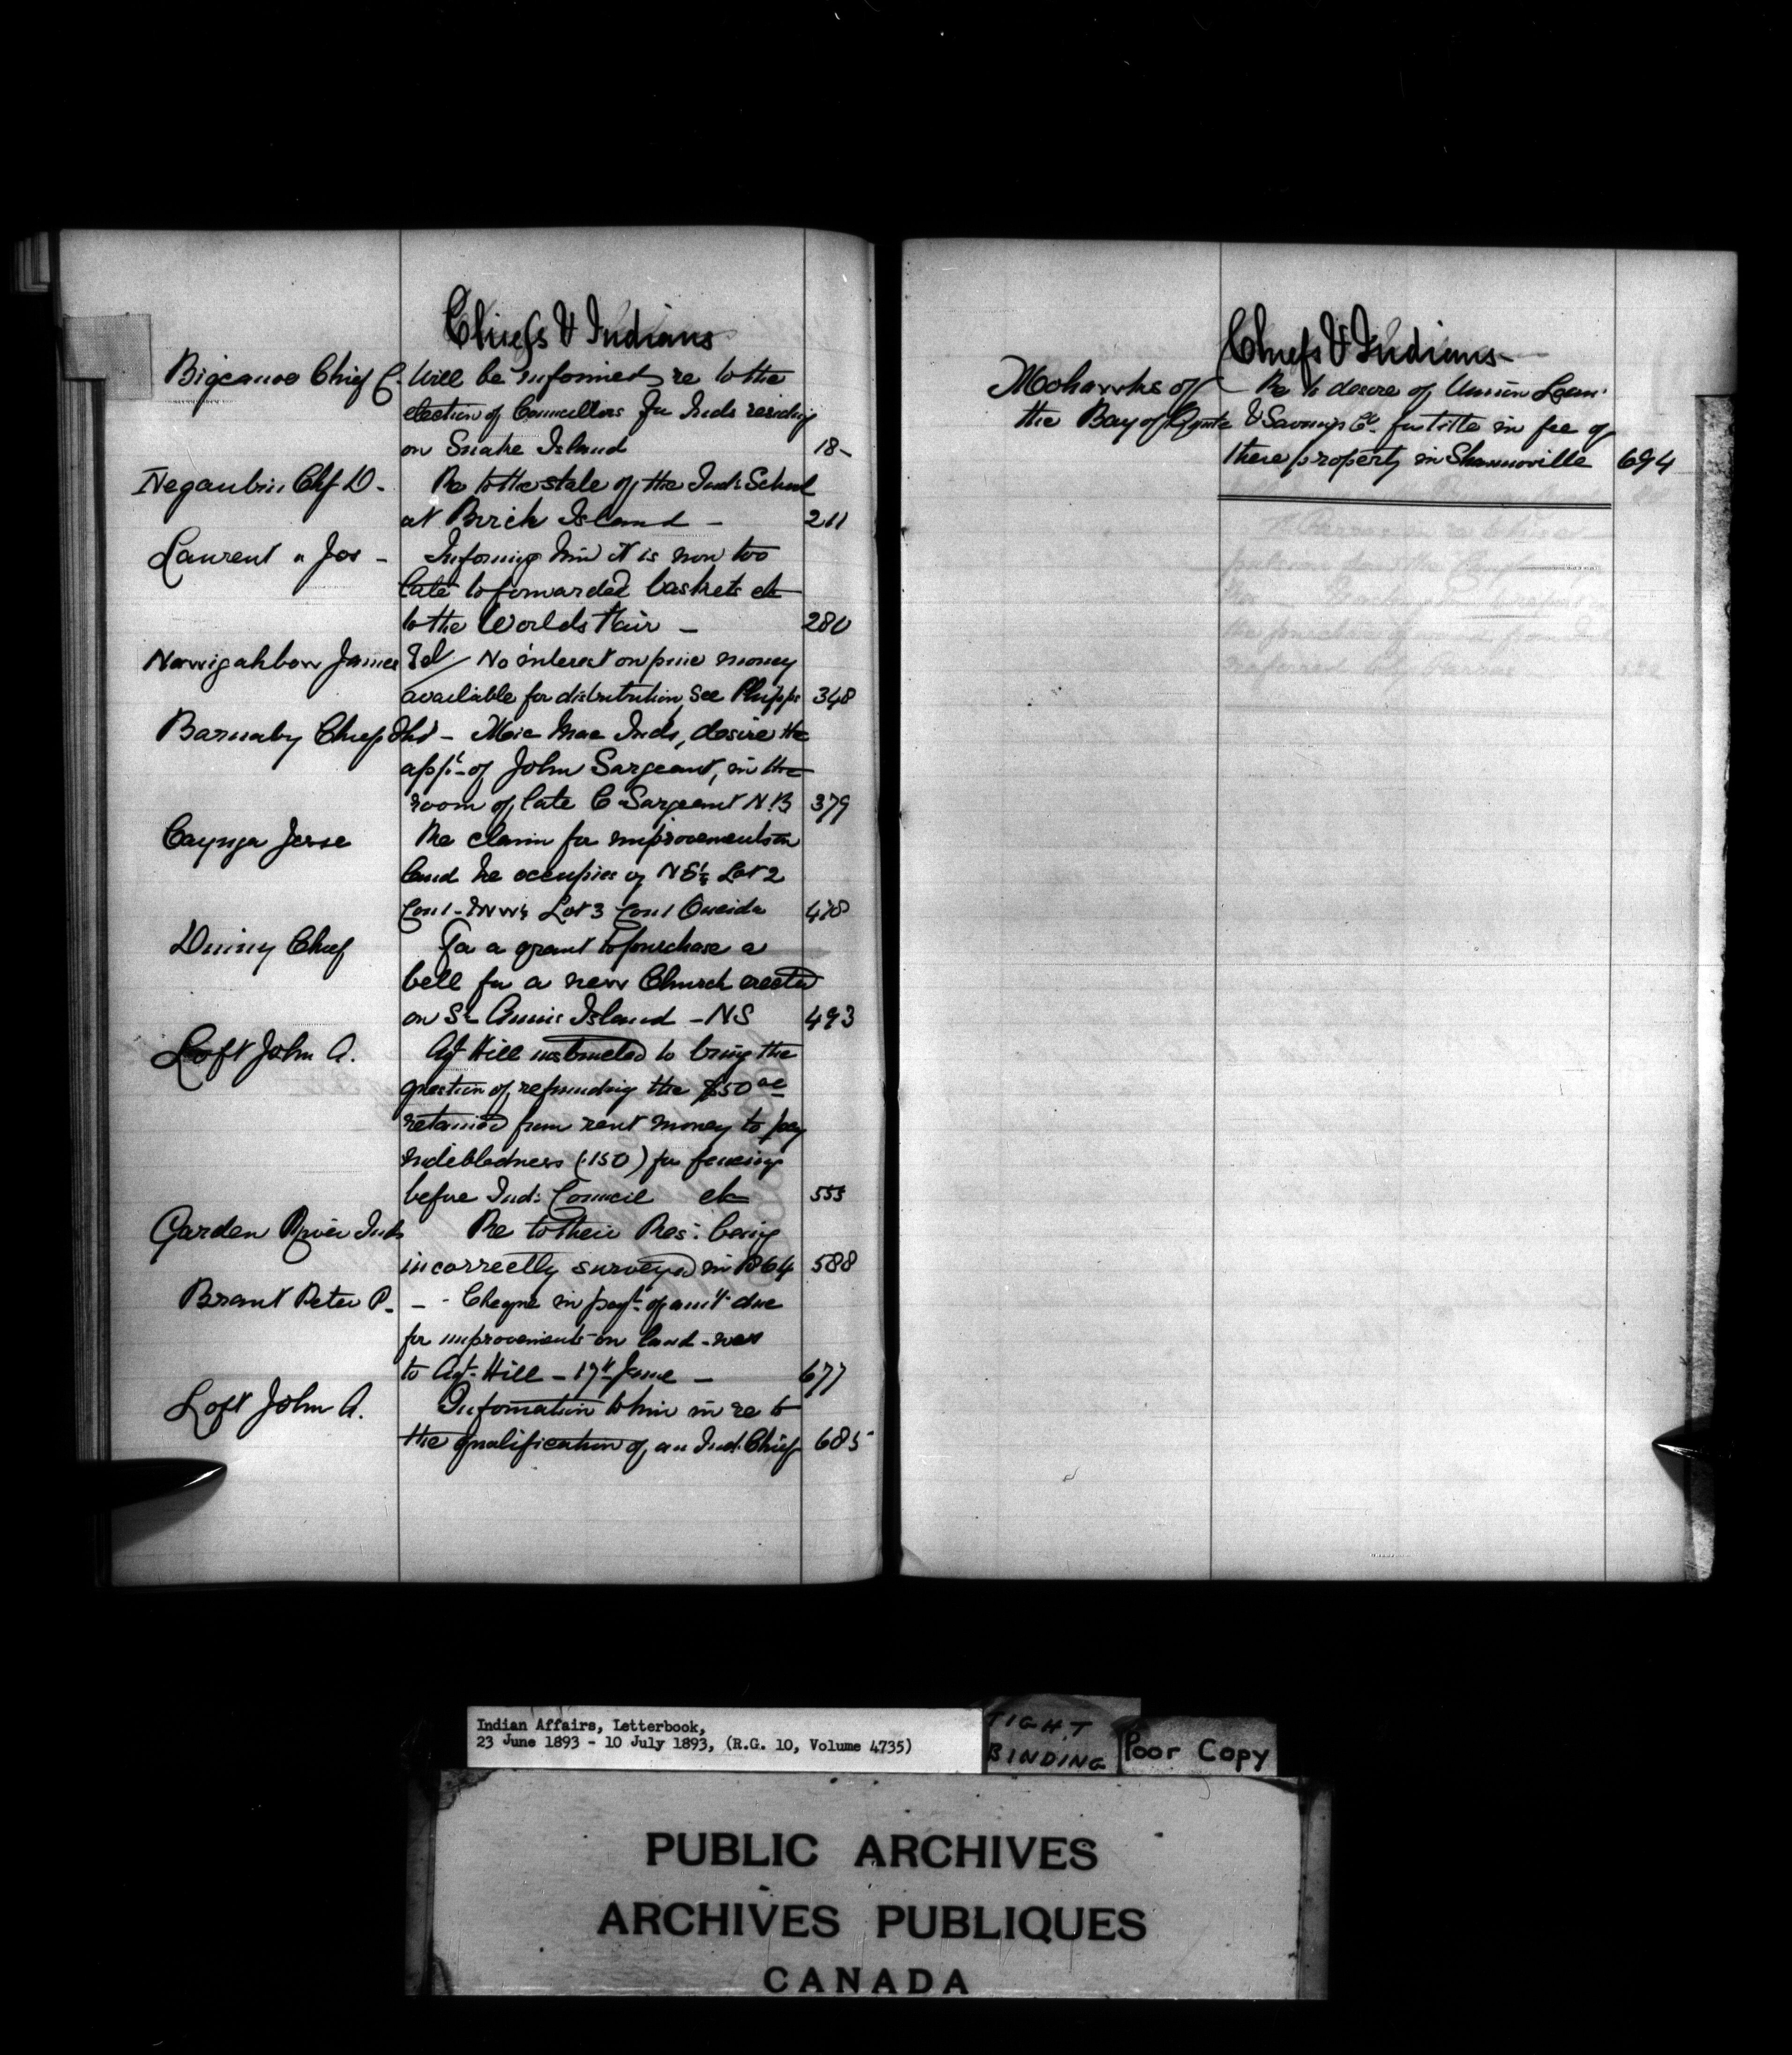 Chiefs & Indians
Bigcanoe Chief C. Will be informed re to the
election of Councillors for Inds residing
on Snake Island 18-
Negaubin Chf D. - Re to the state of the Ind: School
at Birch Island - 211
Laurent " Jos - Informing him it is now too
late to forwarded baskets etc
to the Worlds Fair - 280
Nawigahbow James Ed/ No interest on pine money
available for distribution, See Phipps 348
Barnaby Chief - Mic Mac Inds, desire the
appt- of John Sargeant, in the
room of late C Sargeant N.B 379
Cayuga Jesse Re claim for improvements on
land he occupies Lot 2
Con 1 - Lot 3 Con 1 Oneida 478
Dming Chief For a grant to purchase a
bell for a new Church erected
on St Annis Island - NS 493
Loft John A. Agt Hill instructed to bring the
question of refunding the $50 oc
retained from rent money to pay
indebtedness (.150) for fencing
before Ind: Council etc 555
Garden River Inds Re to their Res: being
incorrectly surveyed in 1864 588
Brant Peter P. - - Cheque in payt- of amt due
for improvements on land
to Agt- Hill - 17th June - 677
Loft John A. Information to him in re to
the qualification of an Ind. Chief 685
Chiefs & Indians -
Mohawks of - Re to desire of Union Loan
the Bay of Quinte & Savings Co. for title in fee of
there property in Shannonville 694
Indian Affairs, Letterbook,
23 June 1893 - 10 July 1893, (R.G. 10, Volume 4735)
TIGHT
BINDING
Poor Copy
PUBLIC ARCHIVES
ARCHIVES PUBLIQUES
CANADA